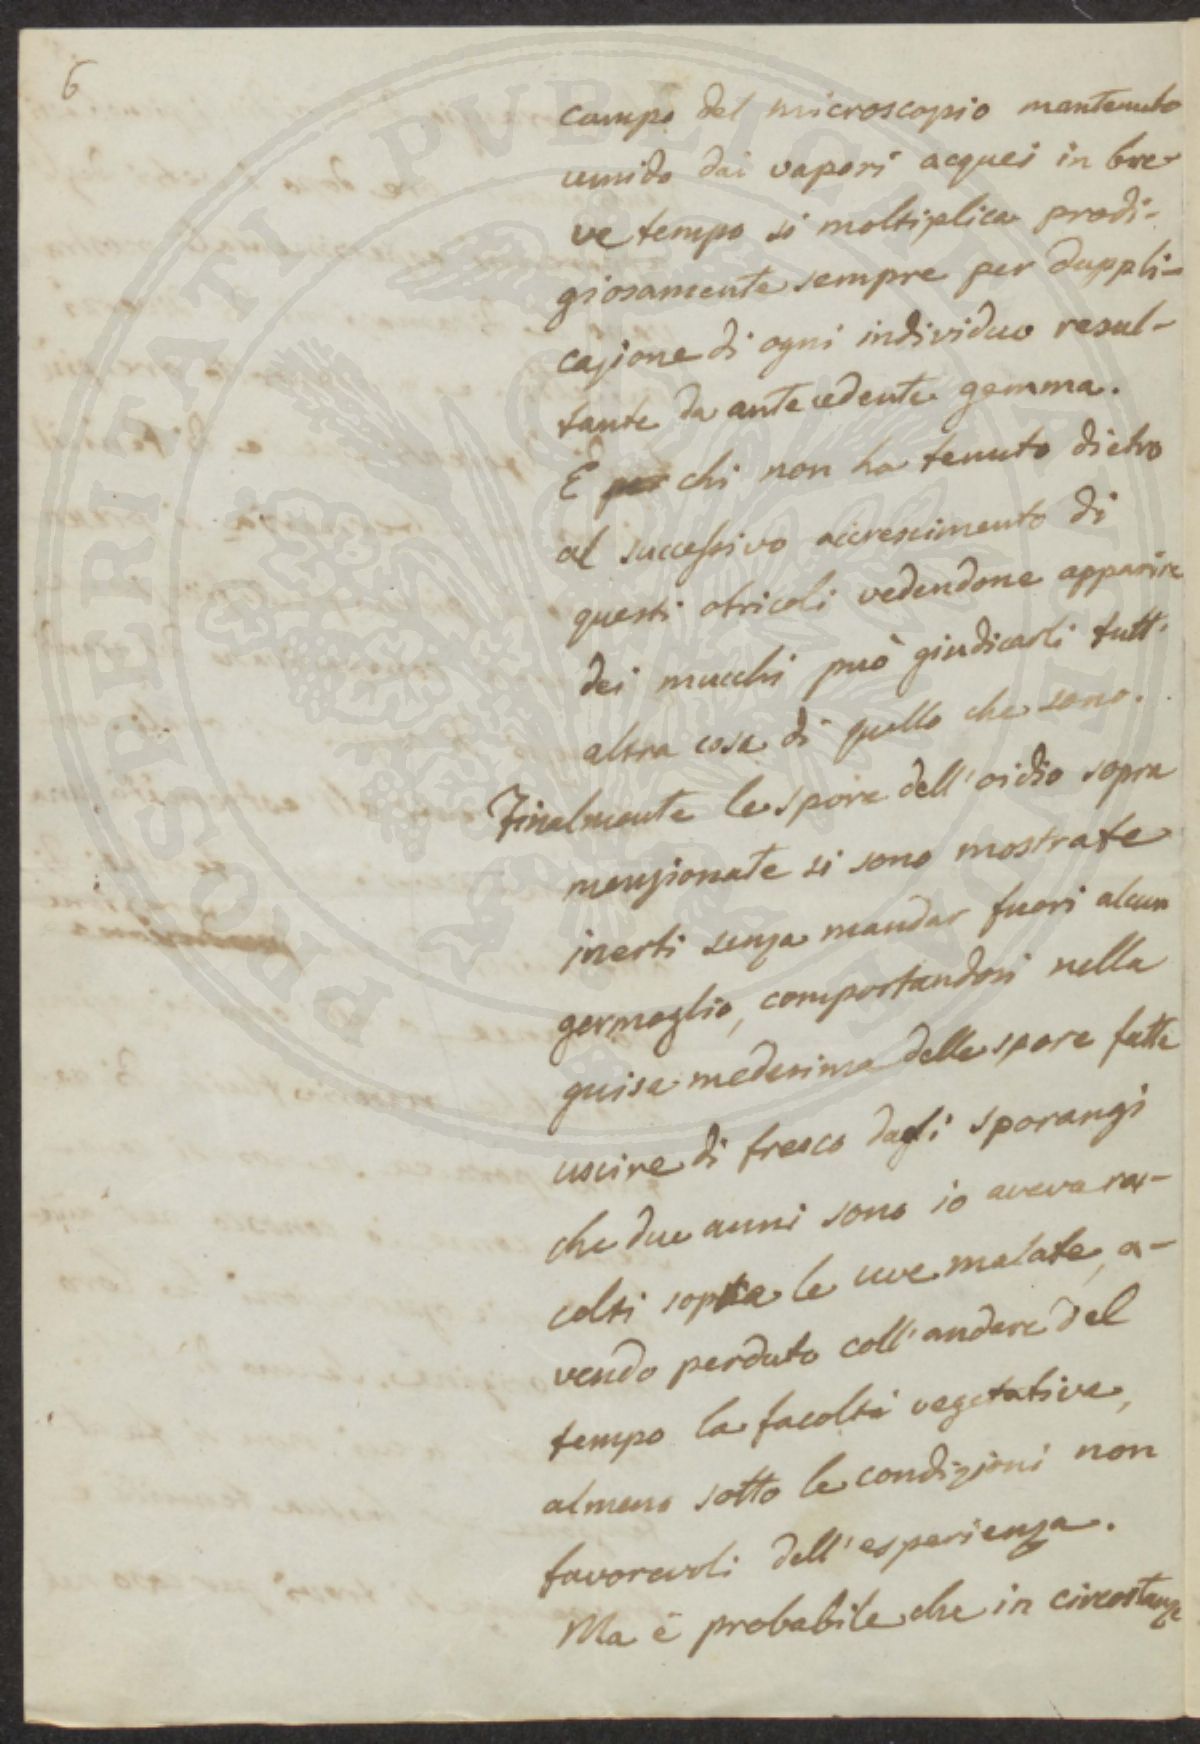 6
campo del microscopio mantenuto
umido dai vapori acquei in bre-
ve tempo si moltiplica prodi-
giosamente sempre per duppli-
cazione di ogni individuo resul-
tante da antecedente gemma.
E per chi non ha tenuto dietro
al successivo accrescimento di
questi otricoli vedendone apparire
dei mucchi può giudicarli tutt'
altra cosa di quello che sono.
Finalmente le spore dell'oidio sopra
menzionate si sono mostrate
inerti senza mandar fuori alcun
germoglio, comportandosi nella
guisa medesima delle spore fatte
uscire di fresco dagli sporangi
che due anni sono io aveva rac-
colti sopra le uve malate, a-
vendo perduto coll'andare del
tempo la facoltà vegetative,
almeno sotto le condizioni non
favorevoli dell'esperienza.
Ma è probabile che in circostanze
PROSPERITATI PUBLICAE AUGENDAE